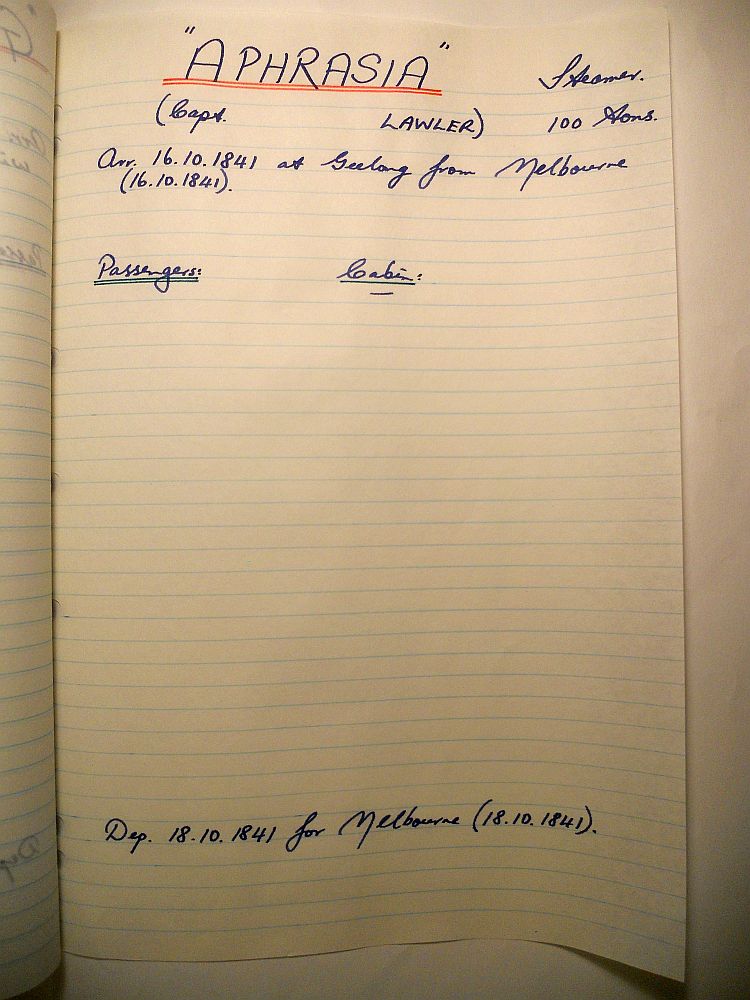 "APHRASIA" Steamer.
(Capt. LAWLER) 100 Tons.
Arr. 16.10.1841 at Geelong from Melbourne
(16.10.1841).
Passengers: Cabin:
Dep. 18.10.1841 for Melbourne (18.10.1841).